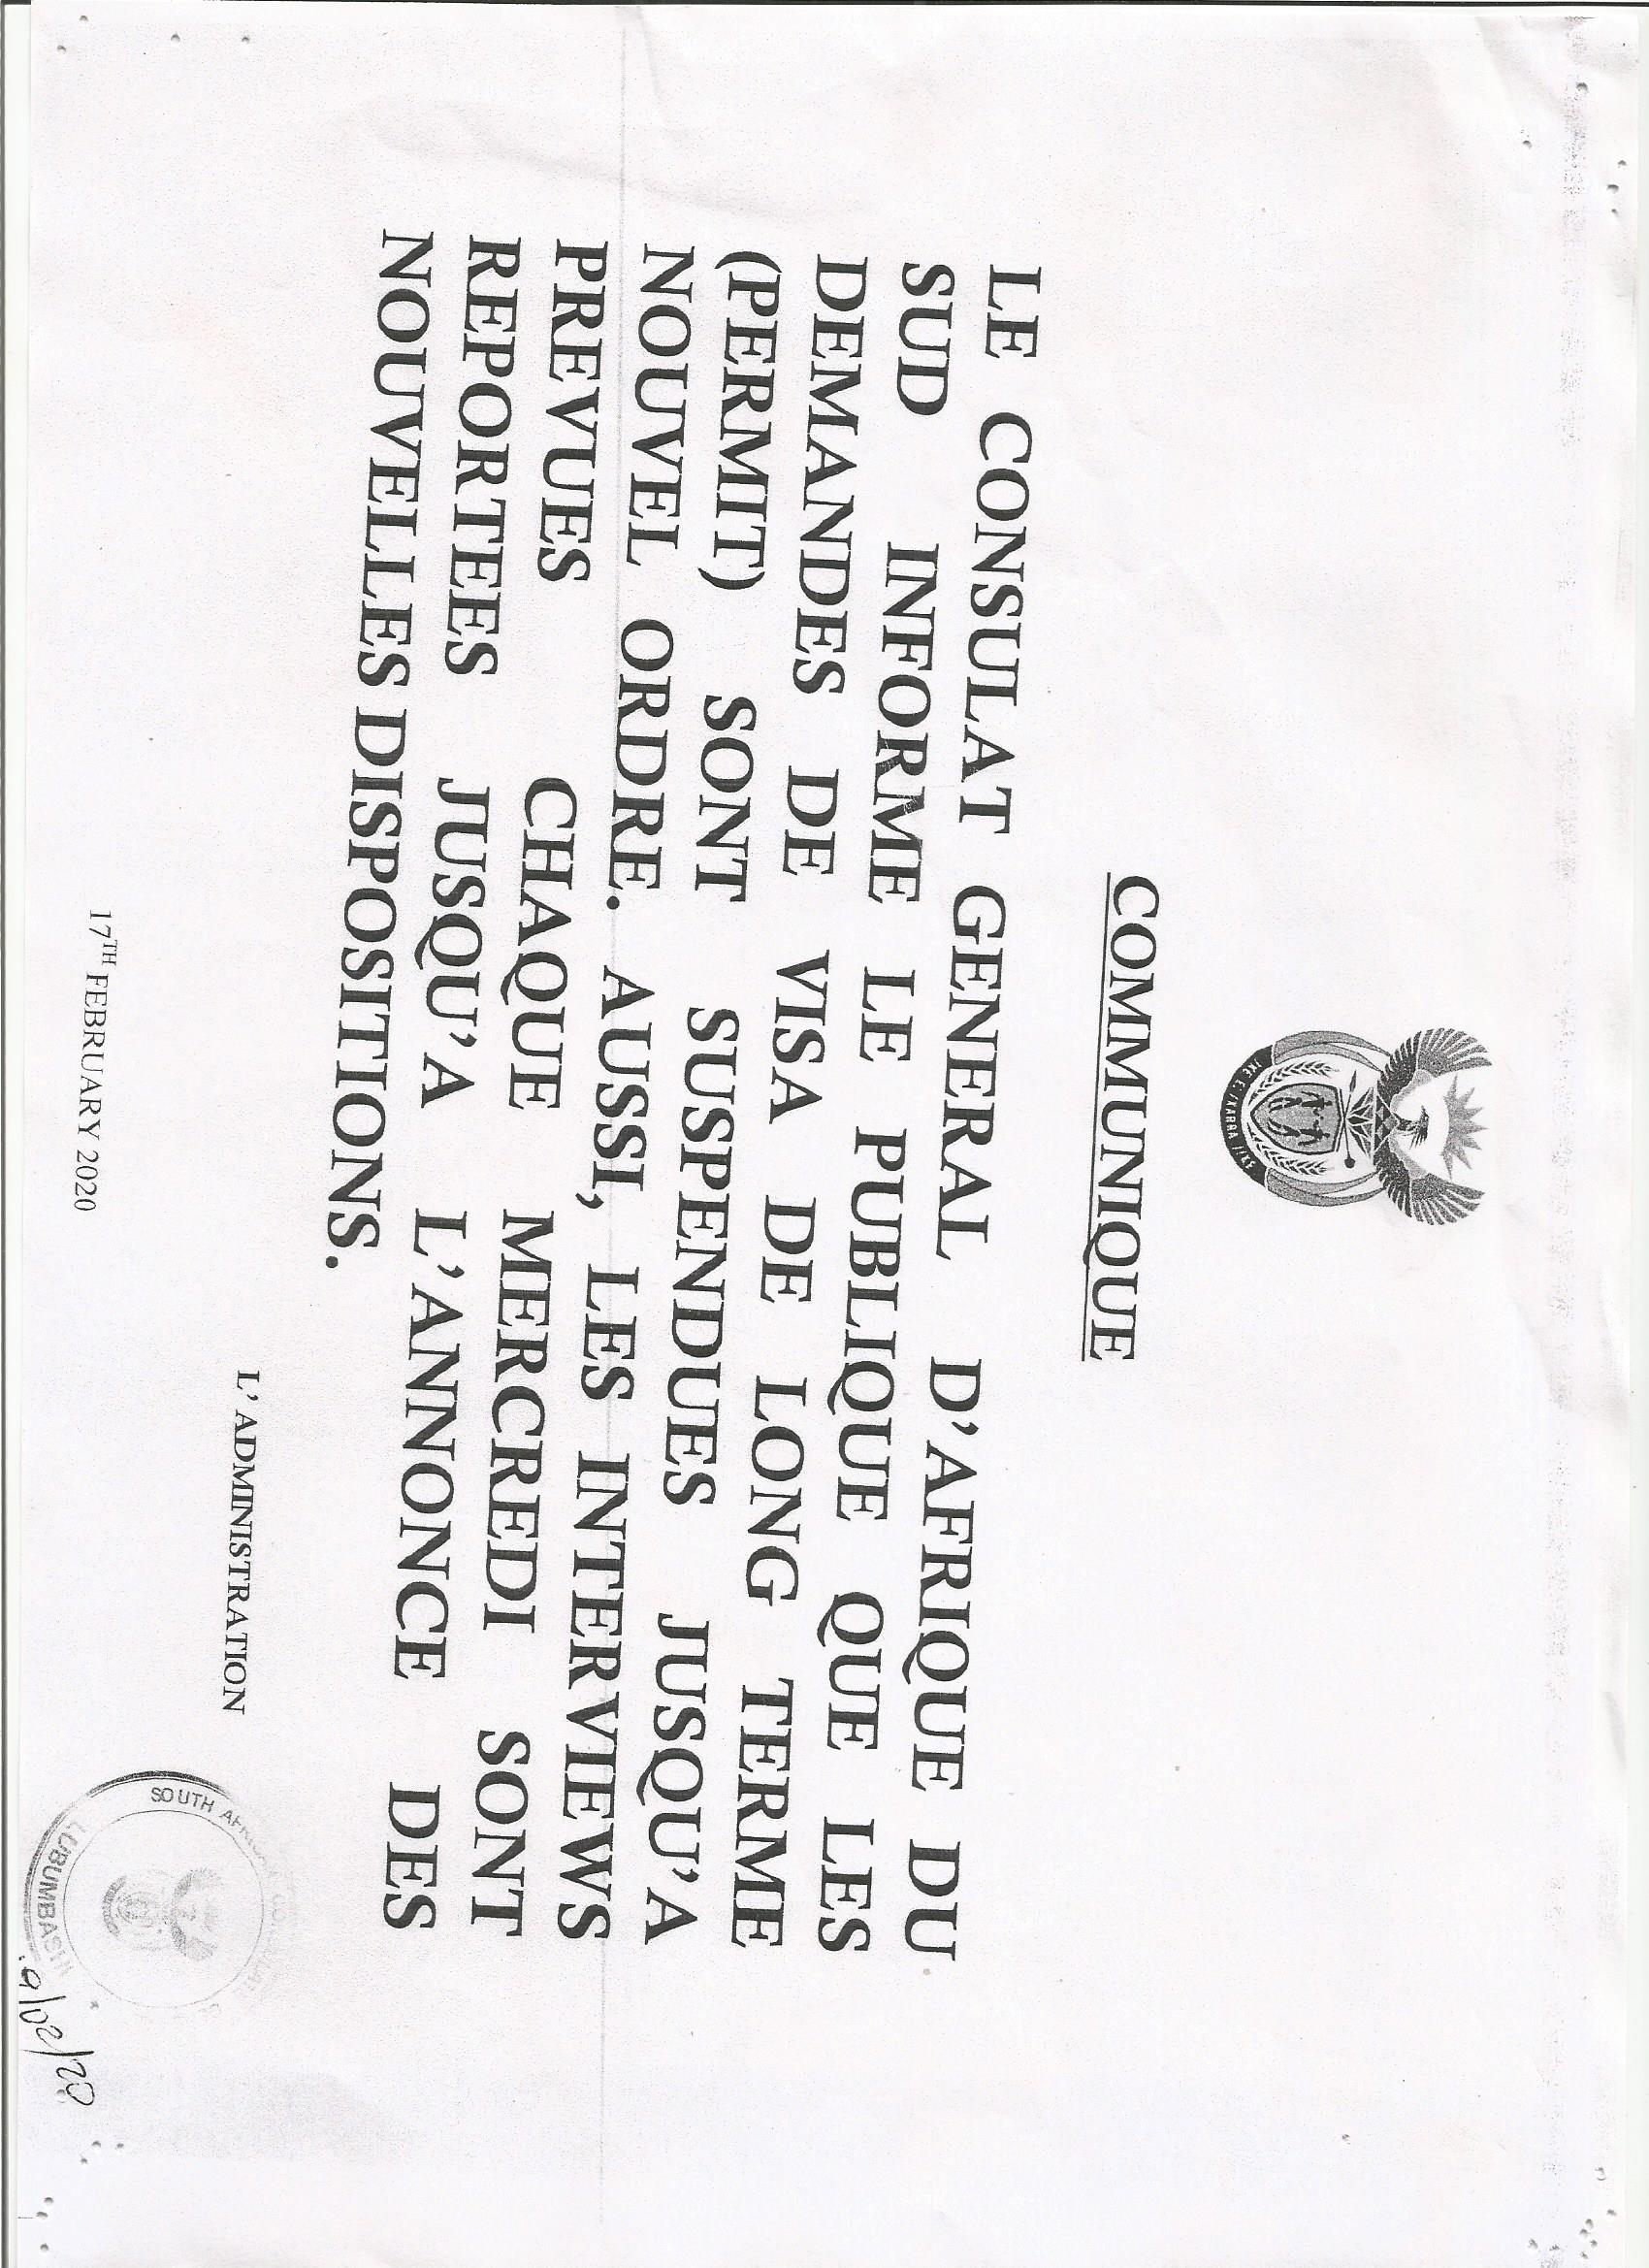 !KE E: /XARRA //KE
COMMUNIQUE
LE CONSULAT GENERAL D'AFRIQUE DU
SUD INFORME LE PUBLIQUE QUE LES
DEMANDES DE VISA DE LONG TERME
(PERMIT) SONT SUSPENDUES JUSQU'A
NOUVEL ORDRE. AUSSI, LES INTERVIEWS
PREVUES CHAQUE MERCREDI SONT
REPORTEES JUSQU'A L'ANNONCE DES
NOUVELLES DISPOSITIONS.
L'ADMINISTRATION
17TH FEBRUARY 2020
SOUTH
LUBUMBASHI
/02/20